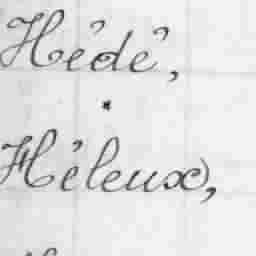 Hédé,
Héleux,